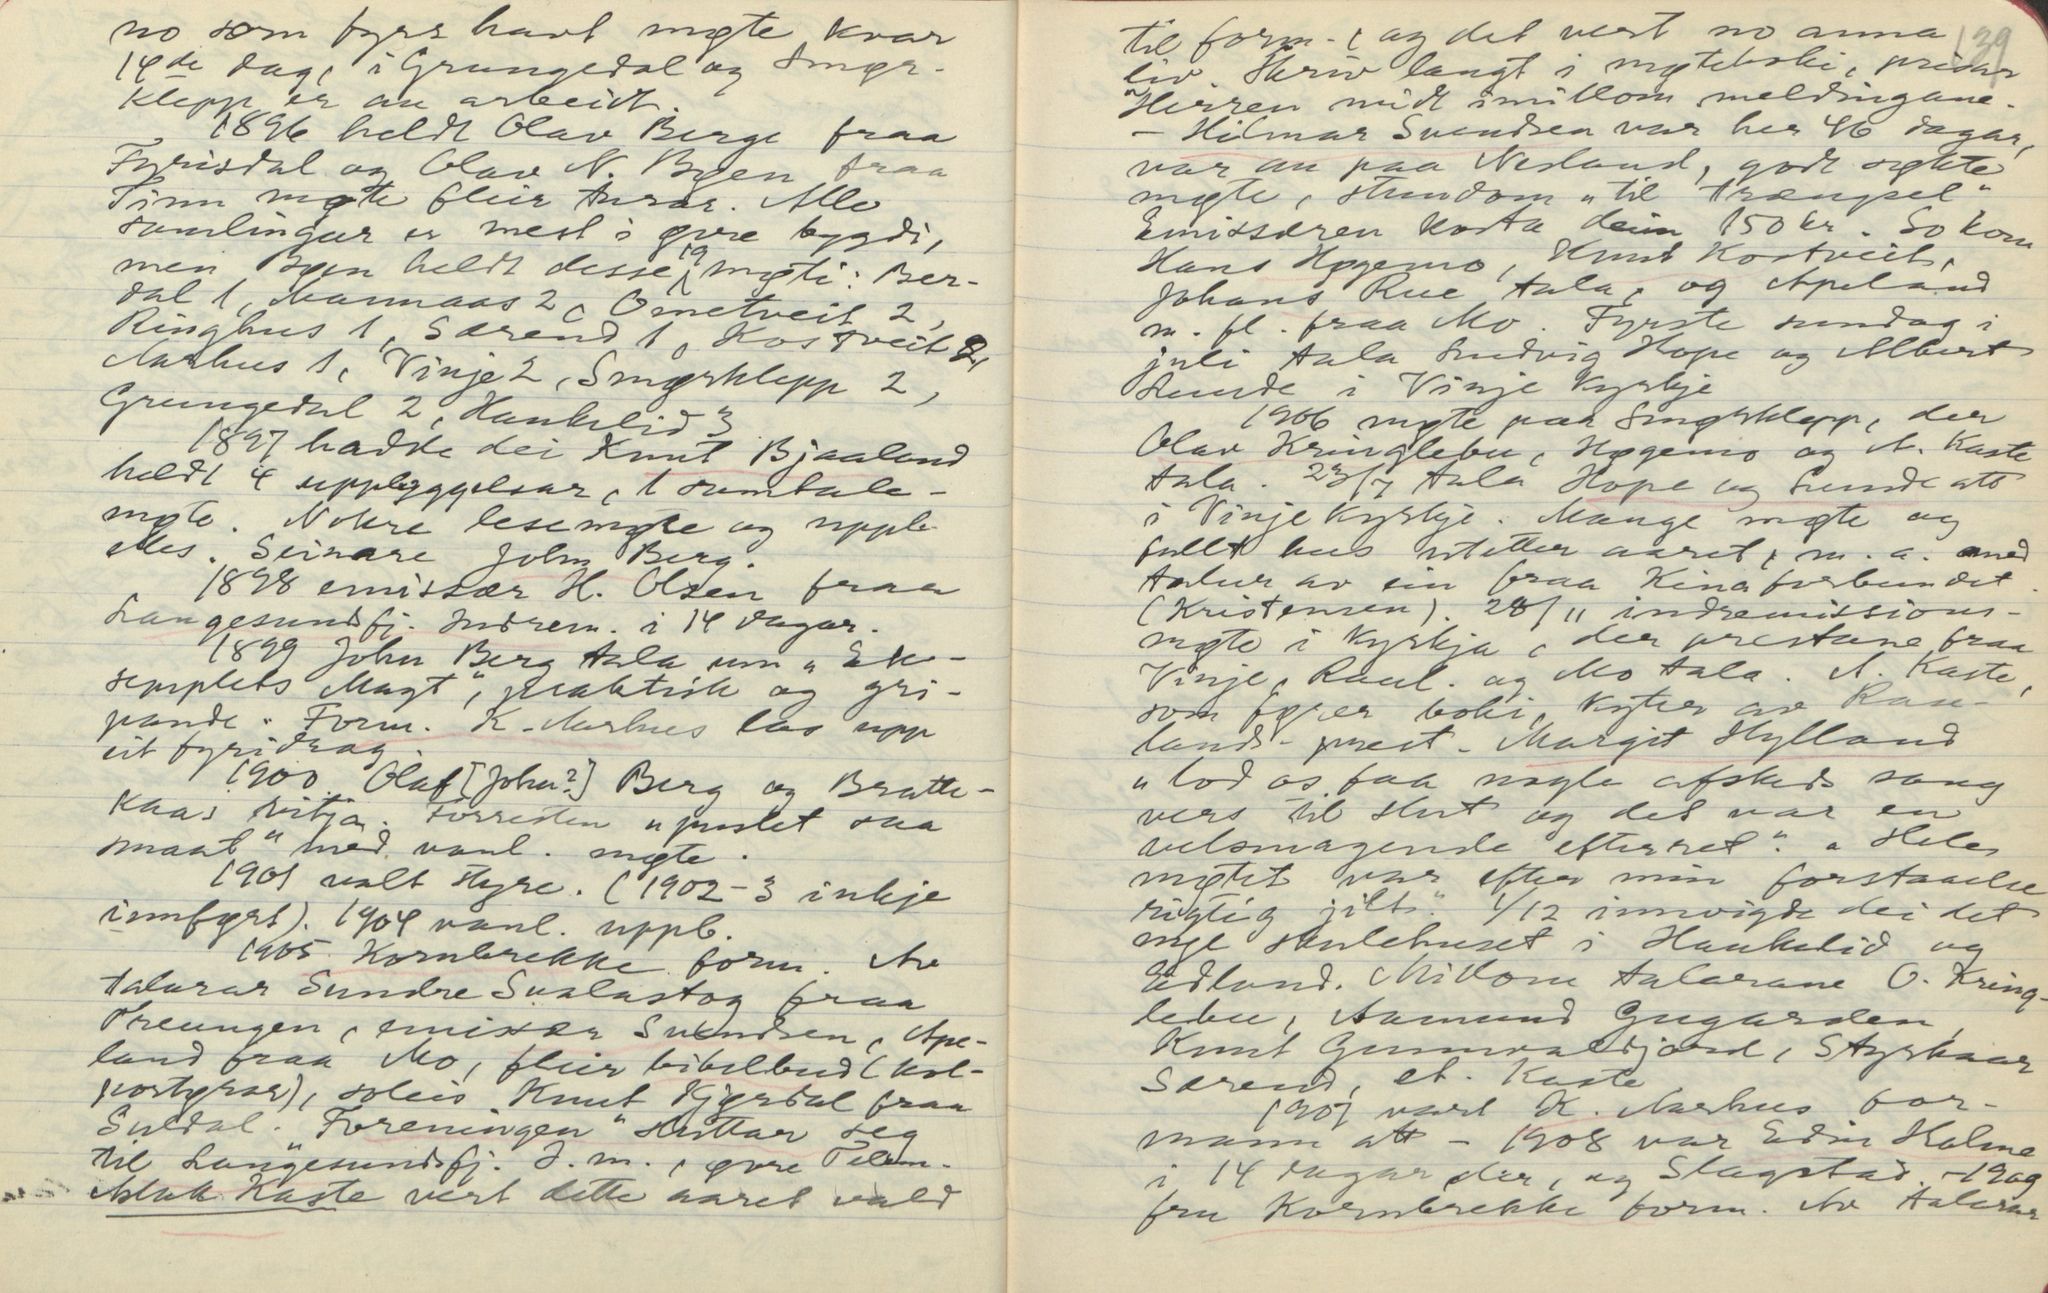 no som fyrr havt møte kvar
14de dag, i Grungedal og Smør-
klepp er au arbeidt.
1896 heldt Olav Berge fraa
Fyrisdal og Olav N. Bøen fraa
Tinn møte fleir turar. Alle
samlingar er mest i øvre bygdi,
men Bøen heldt desse 19 møti: Ber-
dal 1, Mannaas 2, Ometveit 2,
Ringhus 1, Særend 1, Kostveit 2,
Aarhus 1, Vinje 2, Smørklepp 2,
Grungedal 2, Haukelid 3
1897 hadde dei Knut Bjaaland
heldt 4 uppbyggelsar, 1 samtale-
møte. Nokre lesemøte og uppb
elles. Seinare John Berg.
1898 emissær H. Olsen fraa
Langesundsfj. Indrem. i 14 dagar.
1899 John Berg tala um "Ek-
semplets Magt", praktisk og gri-
pande. Form. K. Aarhus las upp
eit fyridrag.
1900. Olaf [John?] Berg og Bratte-
kaas vitja. Forresten "puslet saa
smaat" med vanl. møte.
1901 valt styre. (1902-3 inkje
innført). 1904 vanl. uppb.
1905 Kornbrekke form. Av
talarar Sundre Svalastog fraa
Treungen, emissær Svendsen, Ape-
land fraa Mo, fleir bibelbud (kol-
portørar), soleis Knut Kjørdal fraa
Suldal. "Foreningen" sluttar seg
til Langesundsfj. I.m., øvre Telem.
Aslak Kaste vert dette aaret vald
139
til form., og det vert no anna
liv. Skriv langt i møteboki, prisar
Herren midt imillom meldingane.
- Hilmar Svendsen var her 46 dagar,
var au paa Nesland, godt søkte
møte, stundom "til trængsel"
Emissæren kosta deim 150 kr. So kom
Hans Høgemo, Knut Kostveit,
Johans Rue tala, og Apeland
m. fl. fraa Mo. Fyrste sundag i
juli tala Ludvig Hope og Albert
Lunde i Vinje kyrkje
1906 møte paa Smørklepp, der
Olav Kringlebu, Høgemo og A. Kaste
tala. 23/7 tala Hope og Lunde att
i Vinje kyrkje. Mange møte og
fullt hus utetter aaret, m. a. med
talar av ein fraa Kinaforbundet.
(Kristensen). 28/11 indremissions-
møte i kyrkja, der prestane fraa
Vinje, Raul. og Mo tala. A. Kaste,
som fører boki, kyter av Rau-
lands-prest. Margit Hylland
"lod os faa nogle afskeds sang
vers til slut og det var en
velsmagende efterret". "Hele
møtet var efter min forstaaelse
rigtig jilt." 1/12 innvigde dei det
nye skulehuset i Haukelid og
Edland. Millom talarane O. Kring-
lebu, Aamund Gugarden,
Knut Gunnvaldjord, Styrkaar
Særend, A. Kaste
1907 vart K. Aarhus for-
mann att - 1908 var Edin Holme
i 14 dagar der, og Slagstad. - 1909
fru Kornbrekke form. Av talarar